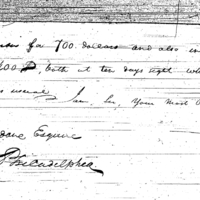 for 700 dollars and also in
00 D, both at ten days sight
usual I am, Sir, Your Most O
Esquire
Philadelphia